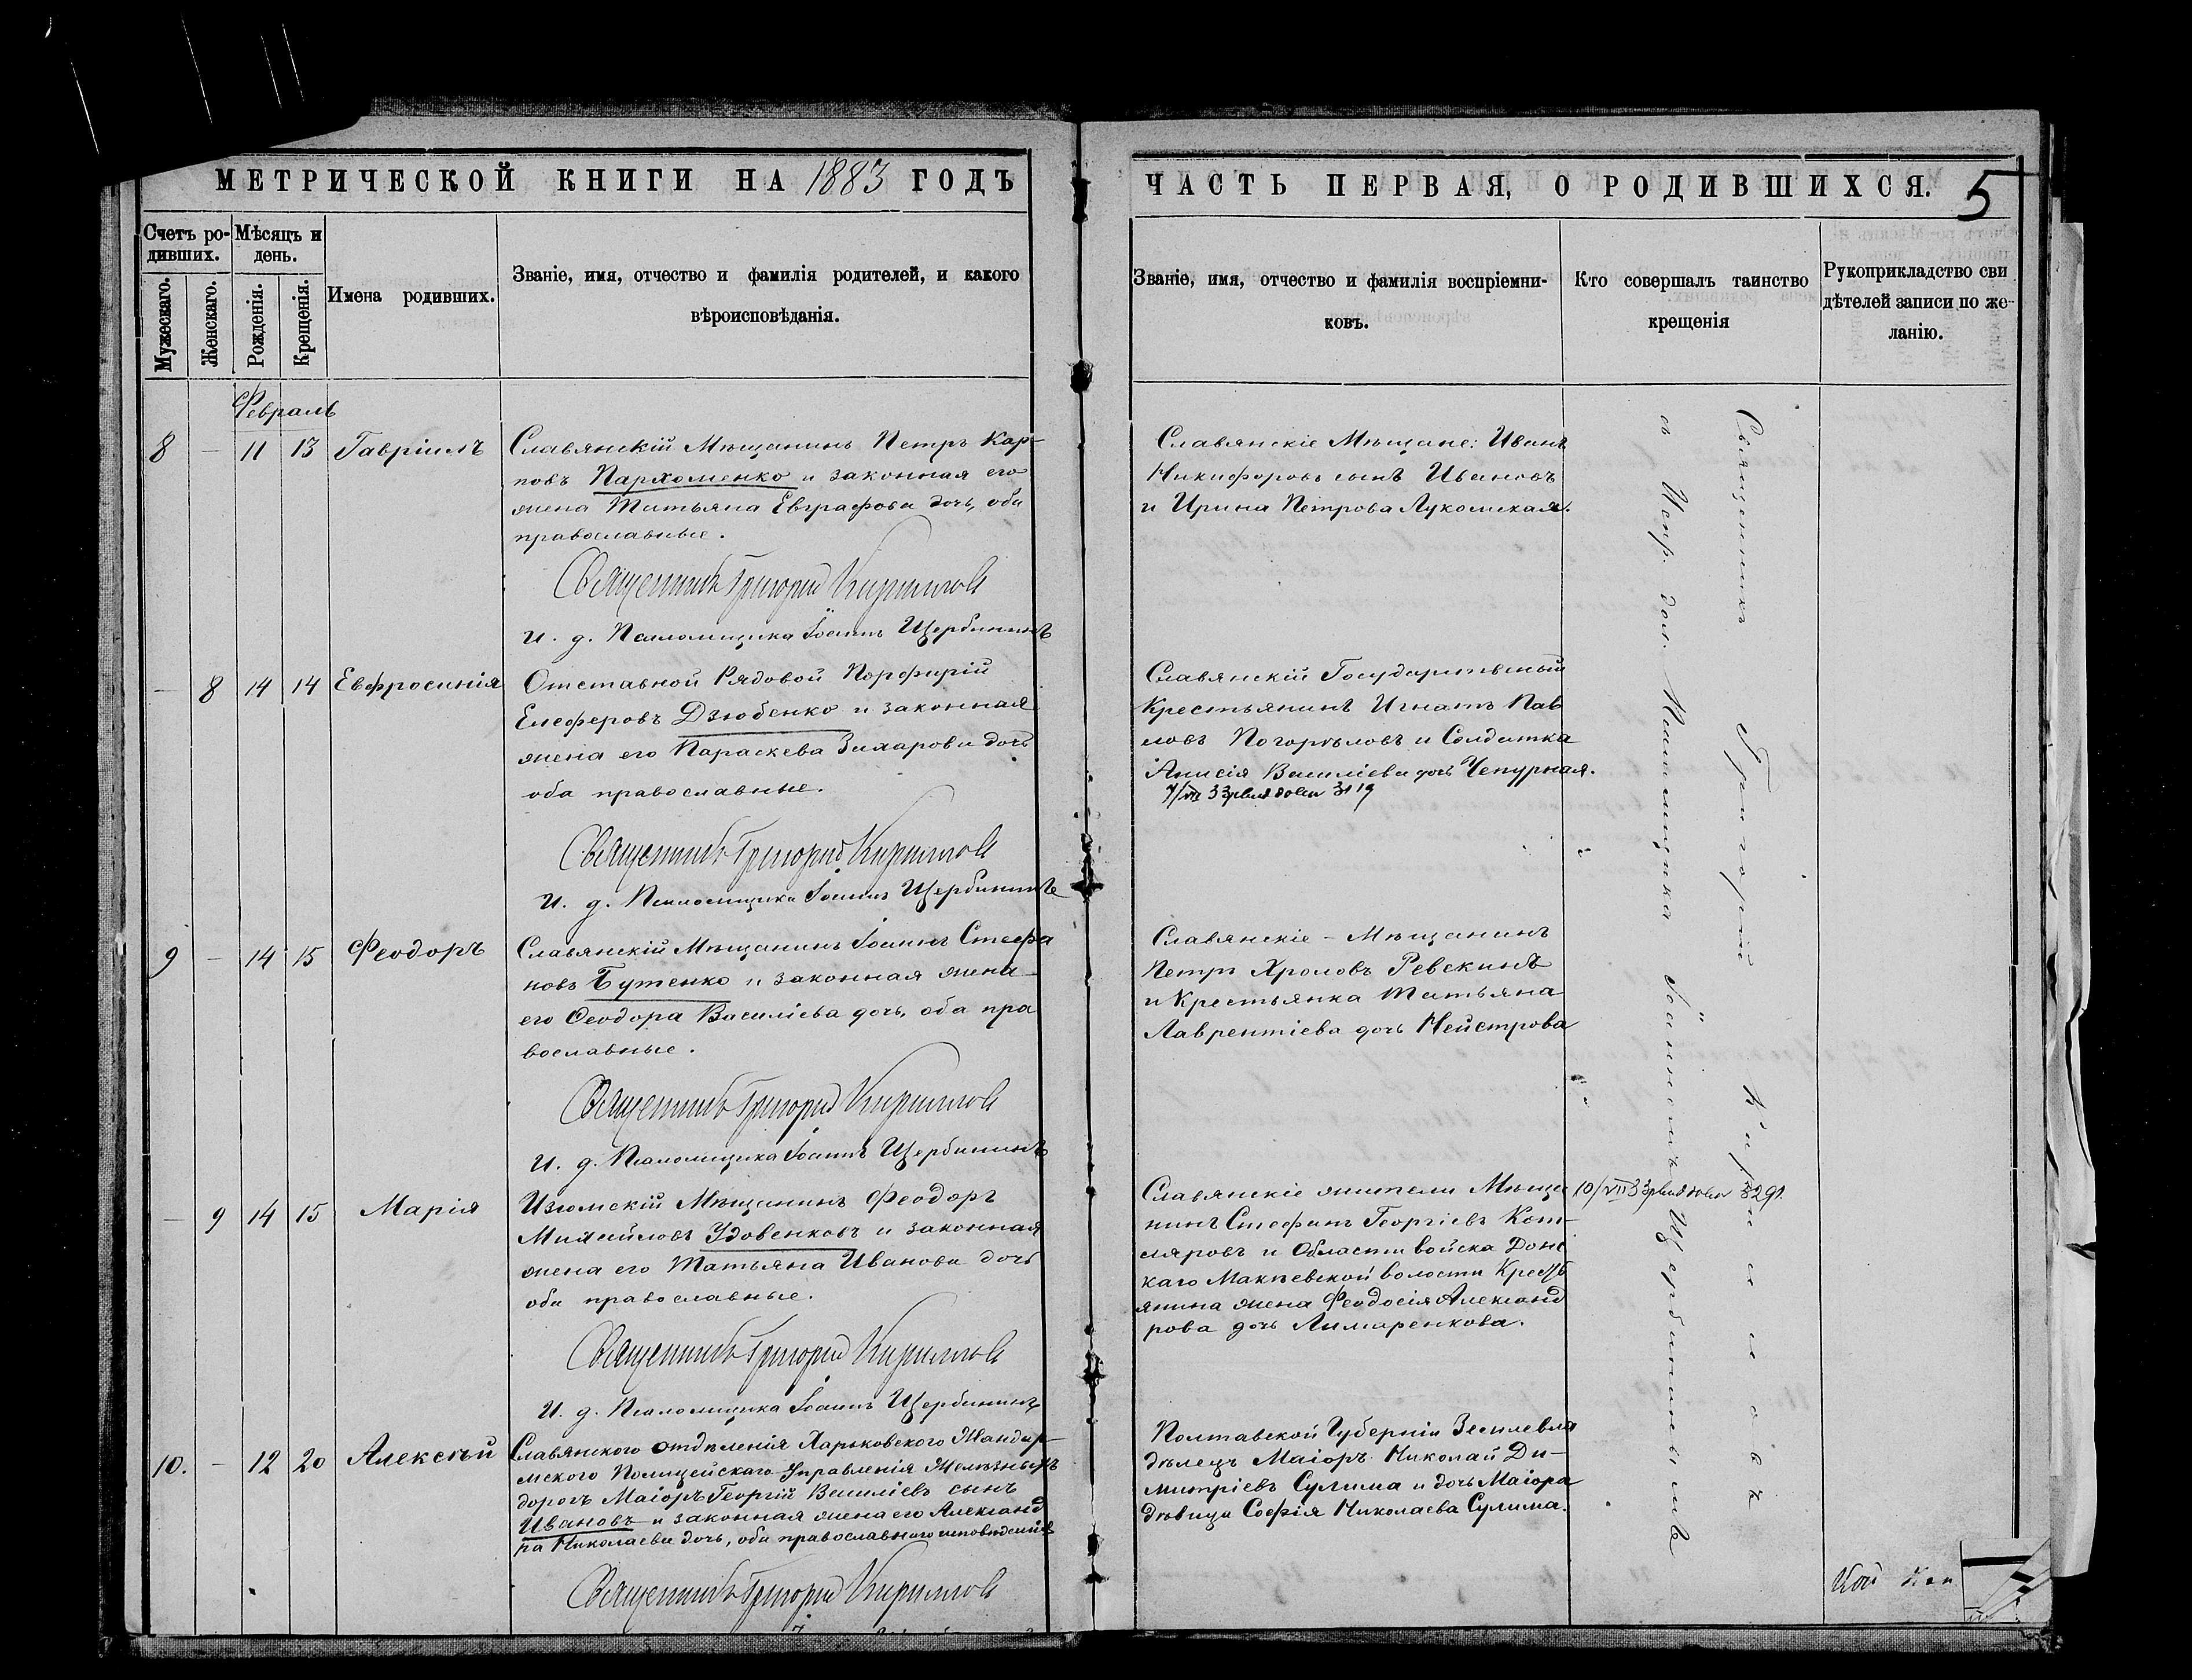 МЕТРИЧЕСКОЙ КНИГИ НА 1883 ГОДЪ
Счетъ ро-
дившихъ.
Мѣсяцъ и
день.
Мужескаго.
Женскаго.
Рожденія.
Крещенія.
Имена родившихъ.
Званіе, имя, отчество и фамилія родителей, и какого
вѣроисповѣданія.
Февраль
8 – 11 13 Гавріилъ
Славянскій Мѣщанинъ Петръ Кар-
повъ Пархоменко и законная его
жена Татьяна Евграфова дочь, оба
православные.
Священникъ Григорій Кирилловъ
И. д. Псаломщика Іоаннъ Щербининъ
– 8 14 14 Евфросинія
Отставной Рядовой Порфирій
Елеферовъ Дзюбенко и законная
жена его Параскева Захарова дочь
оба православные.
Священникъ Григорій Кирилловъ
И. д. Псаломщика Іоаннъ Щербининъ
9 – 14 15 Феодоръ
Славянскій Мѣщанинъ Іоаннъ Стефа
новъ Бутенко и законная жена
его Ѳеодора Василіева дочь, оба пра
вославные.
Священникъ Григорій Кирилловъ
И. д. Псаломщика Іоаннъ Щербининъ
– 9 14 15 Марія
Изюмскій Мѣщанинъ Феодоръ
Михайловъ Удовенковъ и законная
жена его Татьяна Иванова дочь
оба православные.
Священникъ Григорій Кирилловъ
И. д. Псаломщика Іоаннъ Щербининъ
10. – 12 20 Алексѣй
Славянского отдѣленія Харьковского Жандар-
мского Полицейскаго Управленія Желѣзныхъ
дорогъ Маіоръ Георгій Василіевъ сынъ
Ивановъ и законная жена его Александ
ра Николаева дочь, оба православного исповѣданія
Священникъ Григорій Кирилловъ
ЧАСТЬ ПЕРВАЯ, О РОДИВШИХСЯ.
5
Званіе, имя, отчество и фамилія воспріемни-
ковъ.
Кто совершалъ таинство
крещенія
Рукоприкладство сви
дѣтелей записи по же-
ланію.
Славянскіе Мѣщане: Иванъ
Никифоровъ сынъ Ивановъ
и Ирина Петрова Лукомская.
Славянскій Государственый
Крестьянинъ Игнатъ Пав
ловъ Погорѣловъ и Солдатка
Анисія Василіева дочь Чепурная.
Славянскіе – Мѣщанинъ
Петръ Хромовъ Ревскинъ
и Крестьянка Татьяна
Лаврентіева дочь Нейстрова
Славянскіе жители Мѣща
нинъ Стефанъ Георгіевъ Кот-
ляровъ и Области войска Донс
каго Макѣевской волости Кресть
янина жена Феодосія Александ
рова дочь Лимаренкова.
Полтавской Губерніи Землевла
дѣлецъ Маіоръ Николай Ди-
митріевъ Сулима и дочь Маіора
дѣвица Софія Николаева Сулима.
Священникъ Григорій Кирилловъ
съ Испр. дол. Псаломщика Іоанномъ Щербининымъ